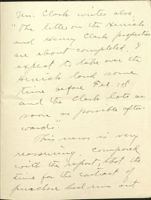 Mr. Clark writes also
"The titles on the Heinish
and Henry Clark properties
are about completed. I
expect to take over the
Heinish land some
time before Feb. 1st
and the Clark lots as
soon as possible after-
wards."
This news is very
reassuring, compared
with the report that the
time for the contract of
purchase had run out